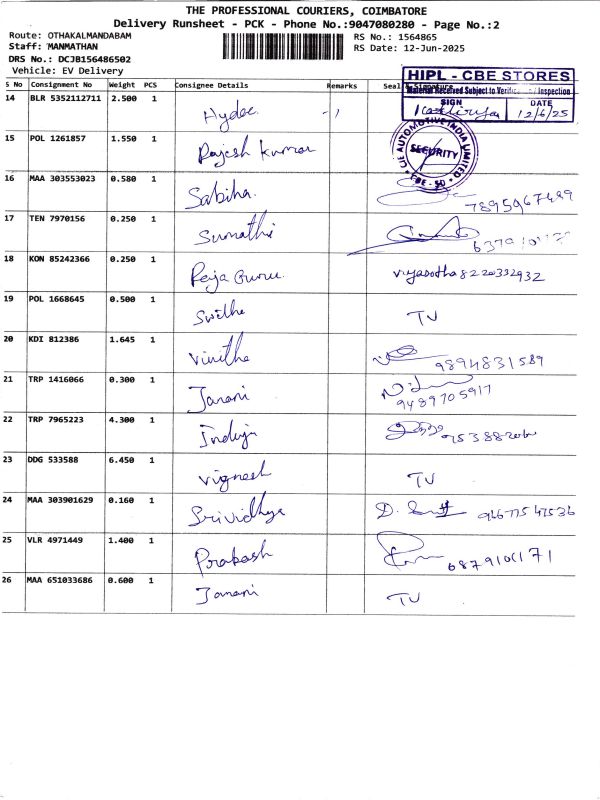 THE PROFESSIONAL COURIERS, COIMBATORE
Delivery Runsheet - PCK - Phone No.:9047080280 - Page No.:2
Route: OTHAKALMANDABAM
RS No.: 1564865
Staff: MANMATHAN
RS Date: 12-Jun-2025
DRS No.: DCJB156486502
Vehicle: EV Delivery
HIPL - CBE STORES
Material Received Subject to Verification / Inspection
SIGN DATE
12/6/25
S No Consignment No Weight PCS Consignee Details Remarks Seal & Signature
14 BLR 5352112711 2.500 1 Hydoc
15 POL 1261857 1.550 1 Rajesh Kumar
AUTOMOTIVE INDIA LIMITED
SECURITY
CBE - 50
16 MAA 303553023 0.580 1 Sabiha. 7895967499
17 TEN 7970156 0.250 1 Sumathi
18 KON 85242366 0.250 1 Raja Guru. 8220332932
19 POL 1668645 0.500 1 Swetha TV
20 KDI 812386 1.645 1 Vinitha 9894831589
21 TRP 1416066 0.300 1 Janani 9489705917
22 TRP 7965223 4.300 1 Induja
23 DDG 533588 6.450 1 Vignesh TV
24 MAA 303901629 0.160 1 Srividhya
25 VLR 4971449 1.400 1 Prakash
26 MAA 651033686 0.600 1 Janani TV